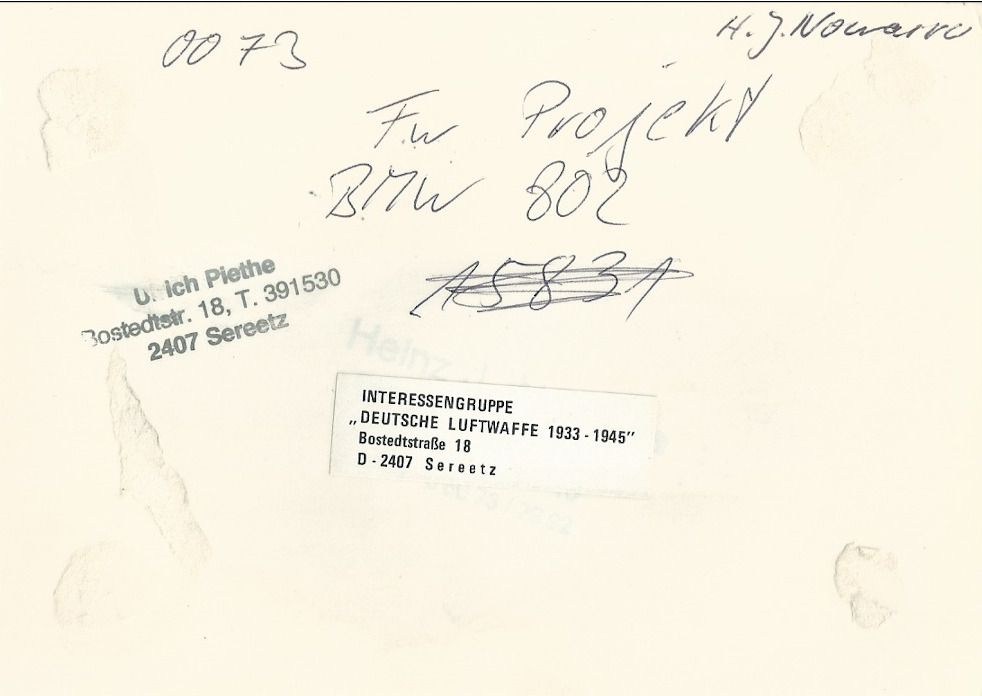 0073
H.J. Nowarra
Fw Projekt
BMW 802
A5831
Piethe
Bostedtstr. 18, T. 391530
2407 Sereetz
Heinz
INTERESSENGRUPPE
„DEUTSCHE LUFTWAFFE 1933-1945”
Bostedtstraße 18
D-2407 Sereetz